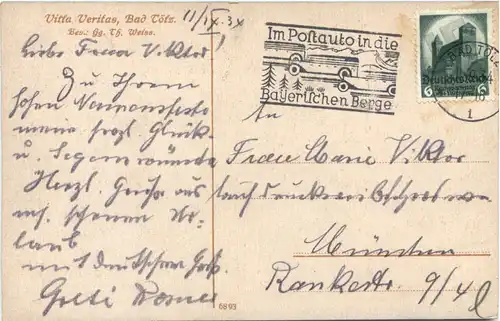 Villa Veritas, Bad Tölz.
Bes.: Gg. Th. Weiss.
11/IX. 34
Liebe Frau Viktor
Zu Ihrem
hohen Namensfeste
meine herzl. Glück-
u. Segenswünsche
Herzl. Grüße aus
m. schönen Ur-
laub
mit deutschem Gruß
Gretl
Im Postauto in die
Bayerischen Berge
BAD TÖLZ
Deutsches Reich
6 6
1
An
Frau Marie Viktor
München
Rankestr. 9/4
6893